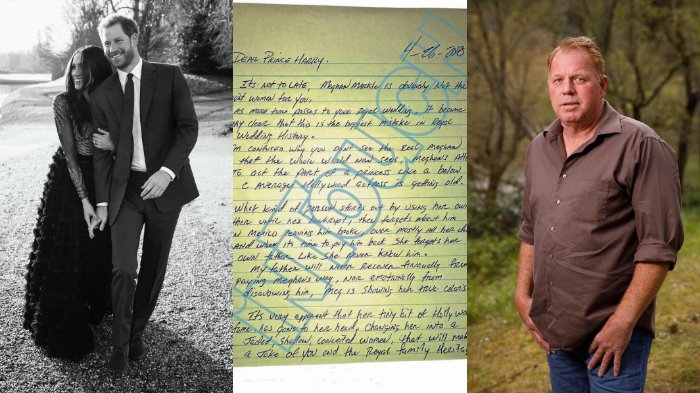 DEAR PRINCE HARRY, 4-26-2018
IT'S NOT TO LATE, MEGHAN MARKLE IS OBVIOUSLY NOT THE
ght woman FOR YOU.
AS MORE TIME PASSES TO YOUR ROYAL WEDDING, IT BECAME
ry CLEAR THAT THIS IS THE BIGGEST MISTAKE IN ROYAL
WEDDING HISTORY.
I'm CONFUSED WHY YOU DON'T SEE THE REAL MEGHAN
THAT THE WHOLE WORLD NOW SEES, MEGHAN'S ATT
TO ACT THE PART OF A PRINCESS LIKE A BELOW
C AVERAGE HOLLYWOOD ACTRESS IS GETTING OLD.
WHAT KIND OF PERSON STARTS OUT BY USING HER OWN
ther UNTIL HE'S BANKRUPT, THEN FORGETS ABOUT HIM
IN MEXICO LEAVING HIM BROKE, OVER MOSTLY ALL HER
AND WHEN IT'S TIME TO PAY HIM BACK SHE FORGETS HER
OWN FATHER LIKE SHE NEVER KNEW HIM.
MY FATHER WILL NEVER RECOVER FROM
PAYING MEGHAN'S WAY, NOR EMOTIONALLY FROM
DISAVOWING HIM, MEG IS SHOWING HER TRUE COLORS
IT'S VERY APPARENT THAT HER TINY BIT OF HOLLYWO
FAME HAS GONE TO HER HEAD, CHANGING HER INTO A
JADED, SHALLOW, CONCEITED WOMAN, THAT WILL MAKE
A JOKE OF YOU AND THE ROYAL FAMILY HERITAG